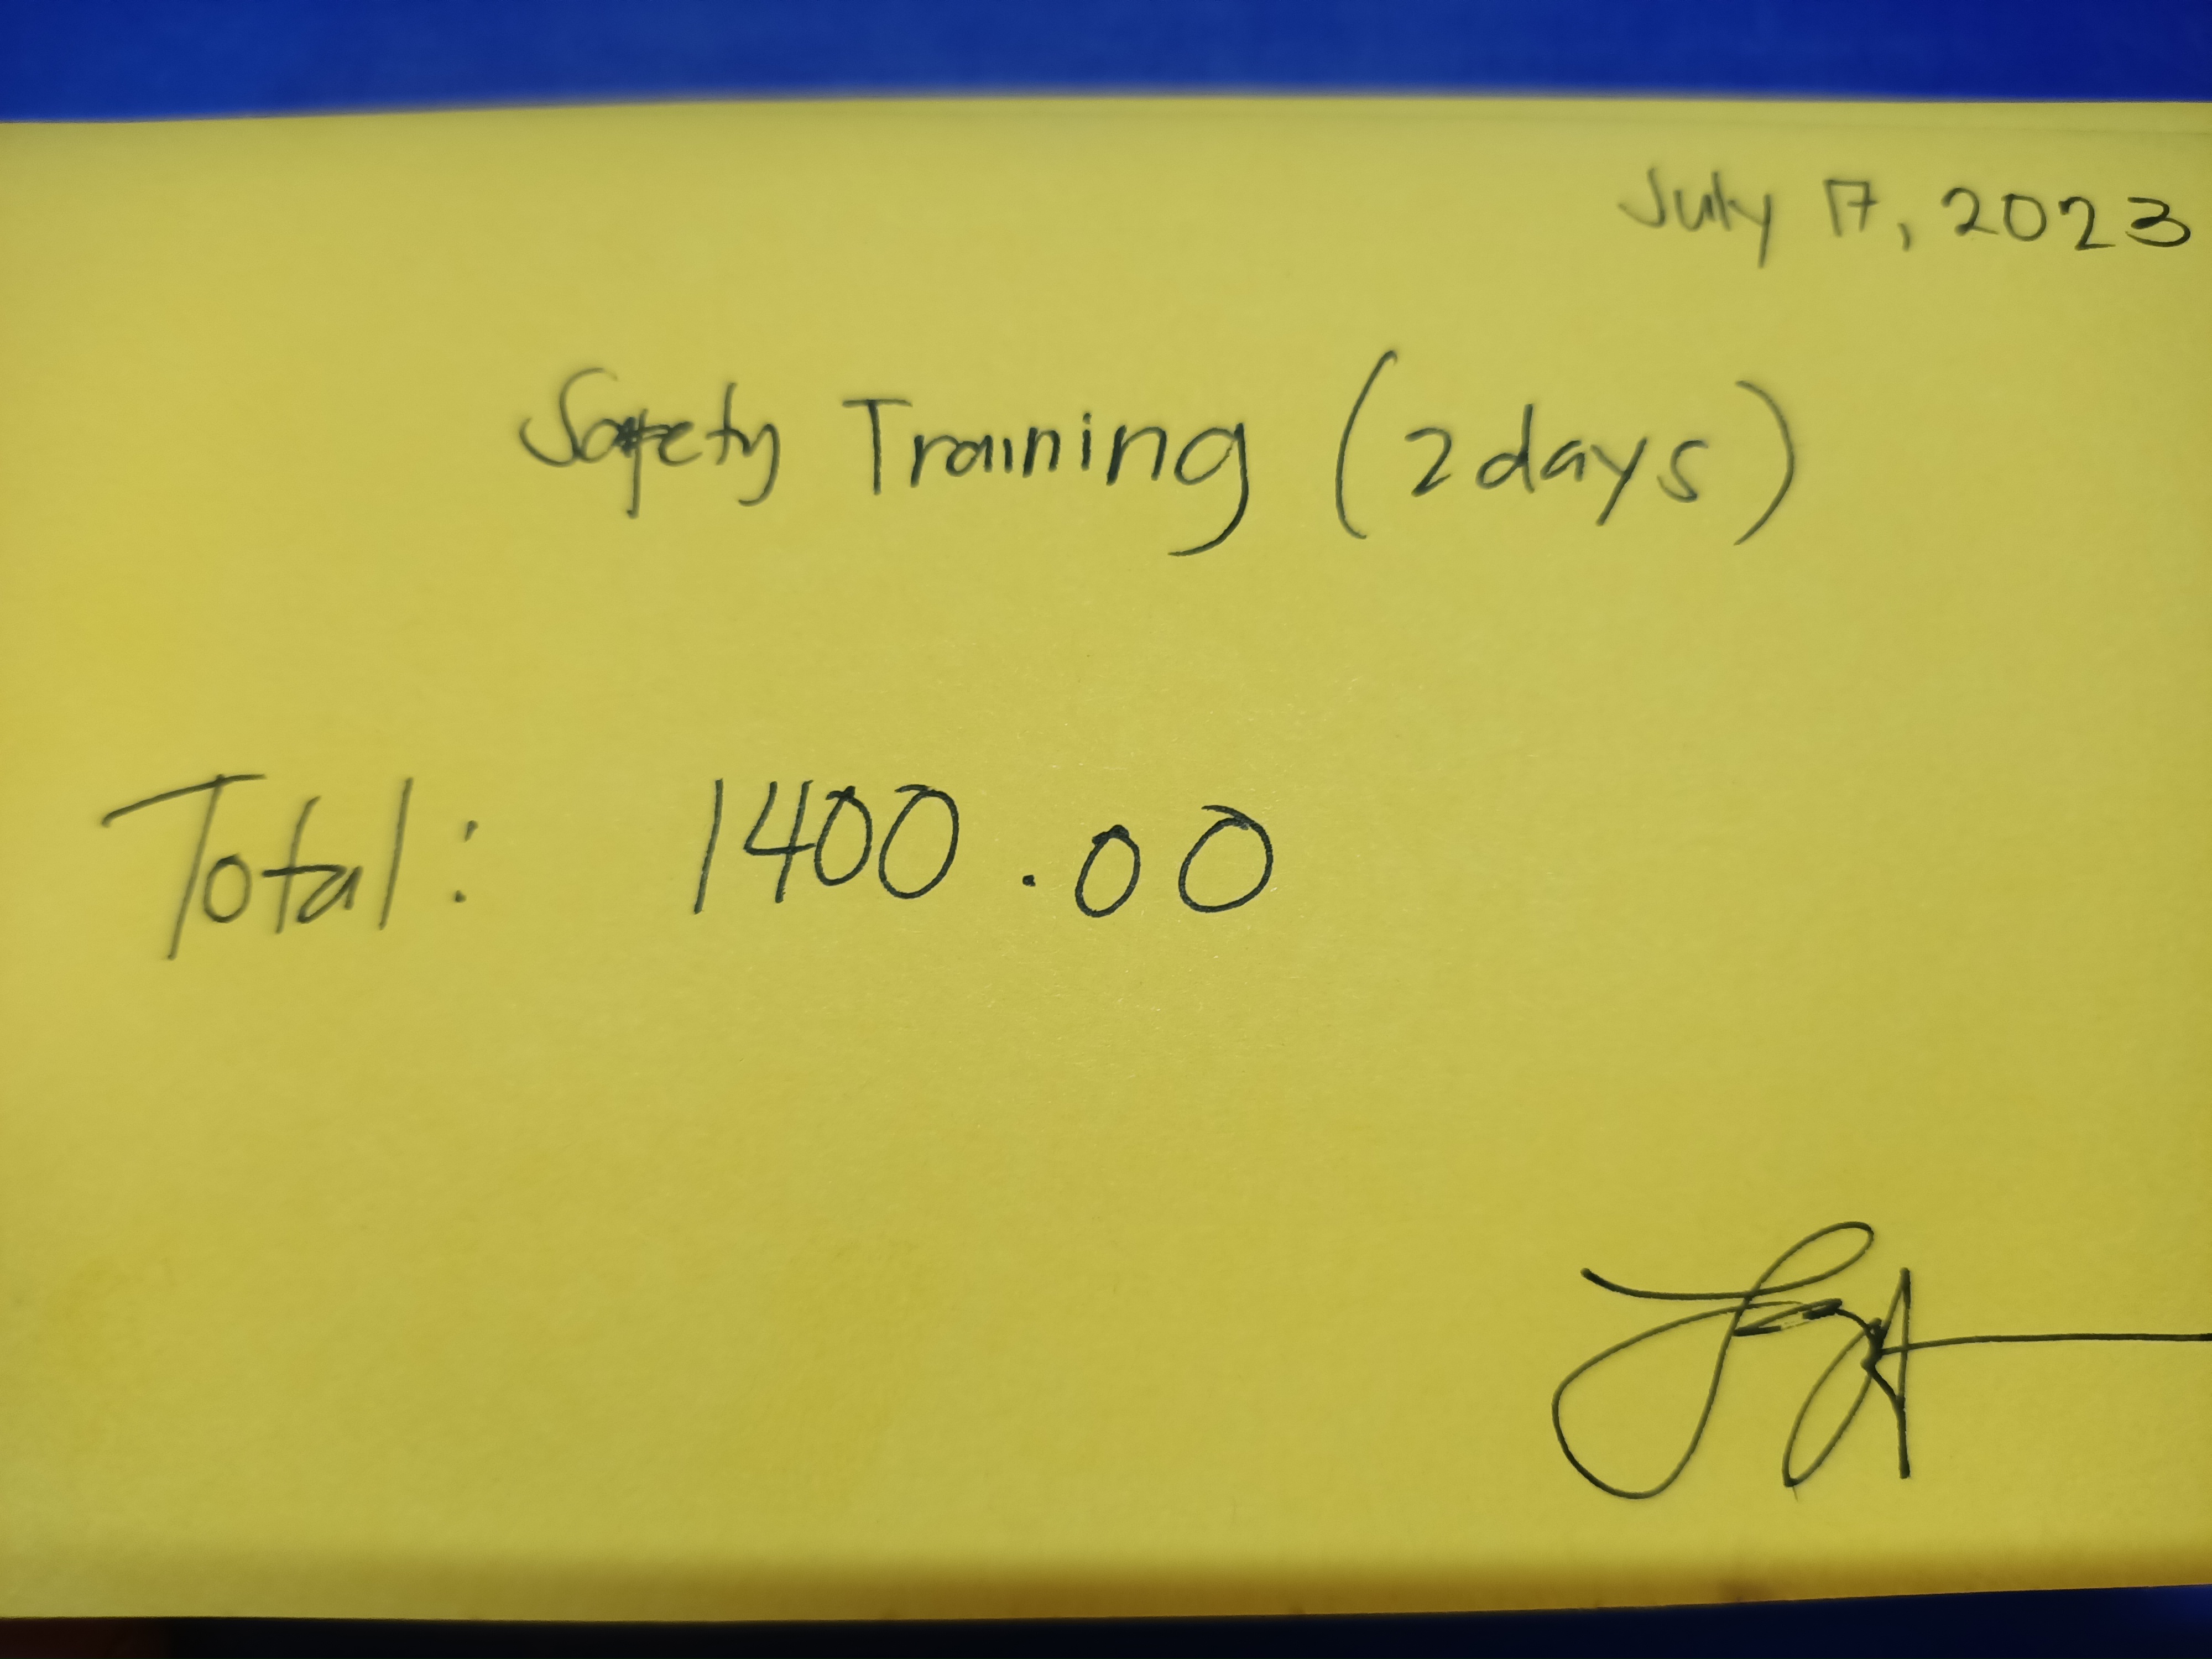 July 17, 2023
Safety Training (2days)
Total: 1400.00